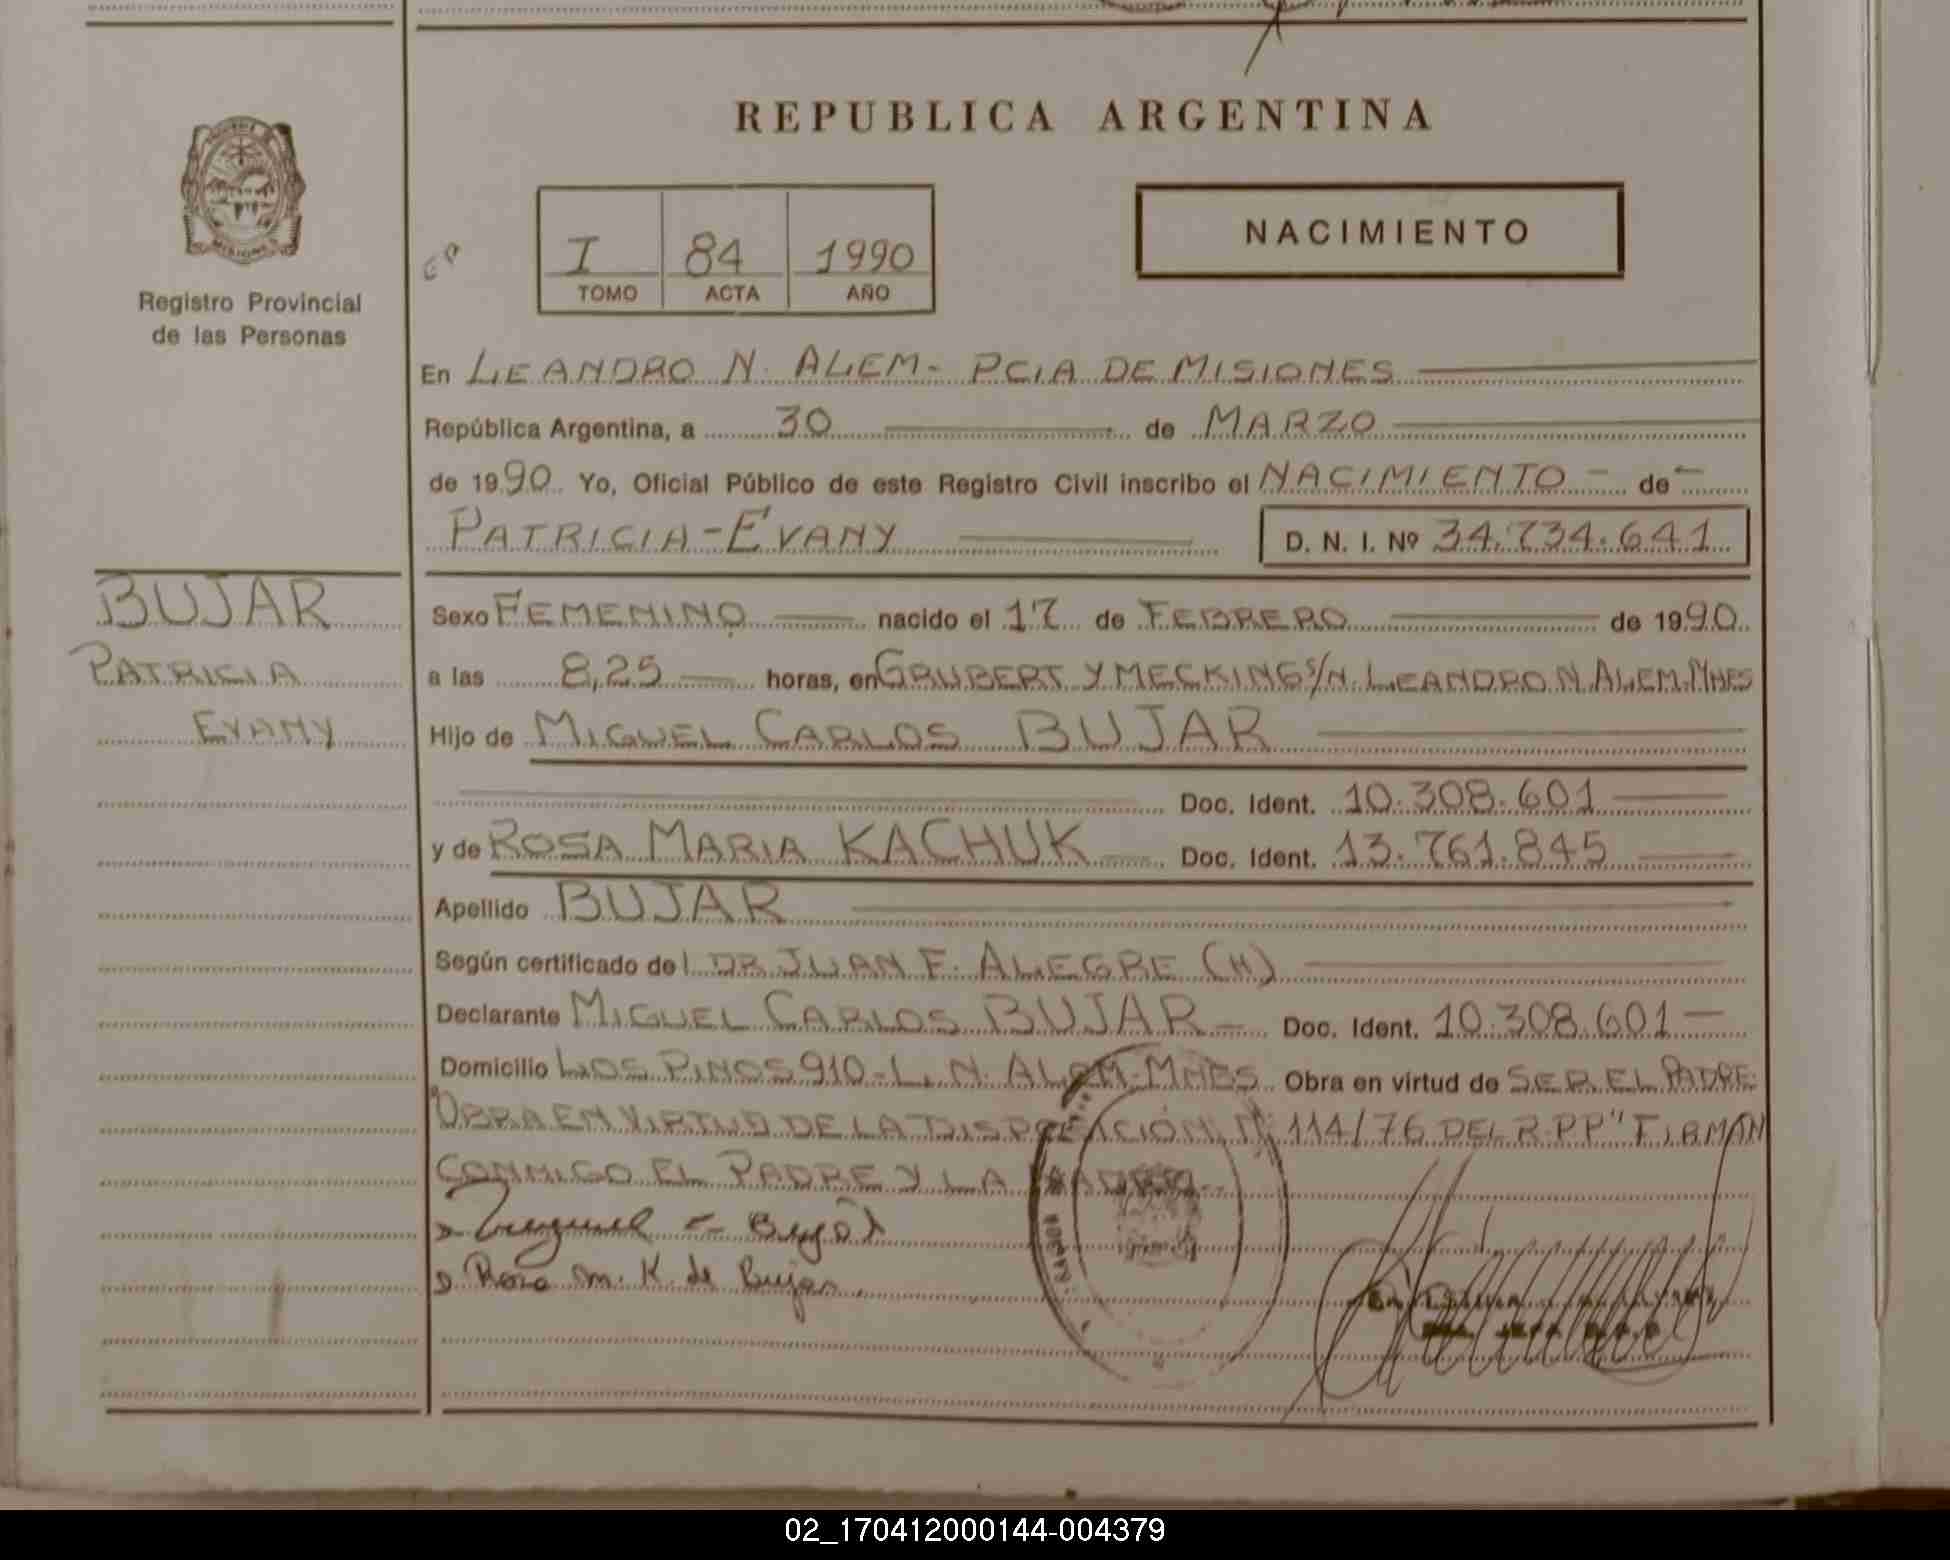 REPUBLICA ARGENTINA
MISIONES
Registro Provincial
de las Personas
I 84 1990
TOMO ACTA AÑO
NACIMIENTO
En LEANDRO N. ALEM - PCIA DE MISIONES
República Argentina, a 30 de MARZO
de 1990 Yo, Oficial Público de este Registro Civil inscribo el NACIMIENTO - de -
PATRICIA-EVANY D. N. I. Nº 34.734.641
BUJAR
PATRICIA
EVANY
Sexo FEMENINO nacido el 17 de FEBRERO de 1990
a las 8,25 horas, en GRUBERT Y MECKING S/N. LEANDRO N. ALEM. MNES
Hijo de MIGUEL CARLOS BUJAR
Doc. Ident. 10.308.601
y de ROSA MARIA KACHUK Doc. Ident. 13.761.845
Apellido BUJAR
Según certificado del DR JUAN F. ALEGRE (H)
Declarante MIGUEL CARLOS BUJAR Doc. Ident. 10.308.601
Domicilio LOS PINOS 910 - L. N. ALEM - MNES Obra en virtud de SER EL PADRE
"OBRA EN VIRTUD DE LA DISPOSICIÓN Nº 114/76 DEL R.P.P" FIRMAN
CONMIGO EL PADRE Y LA MADRE
Rosa M. K. de Bujar
02_170412000144-004379